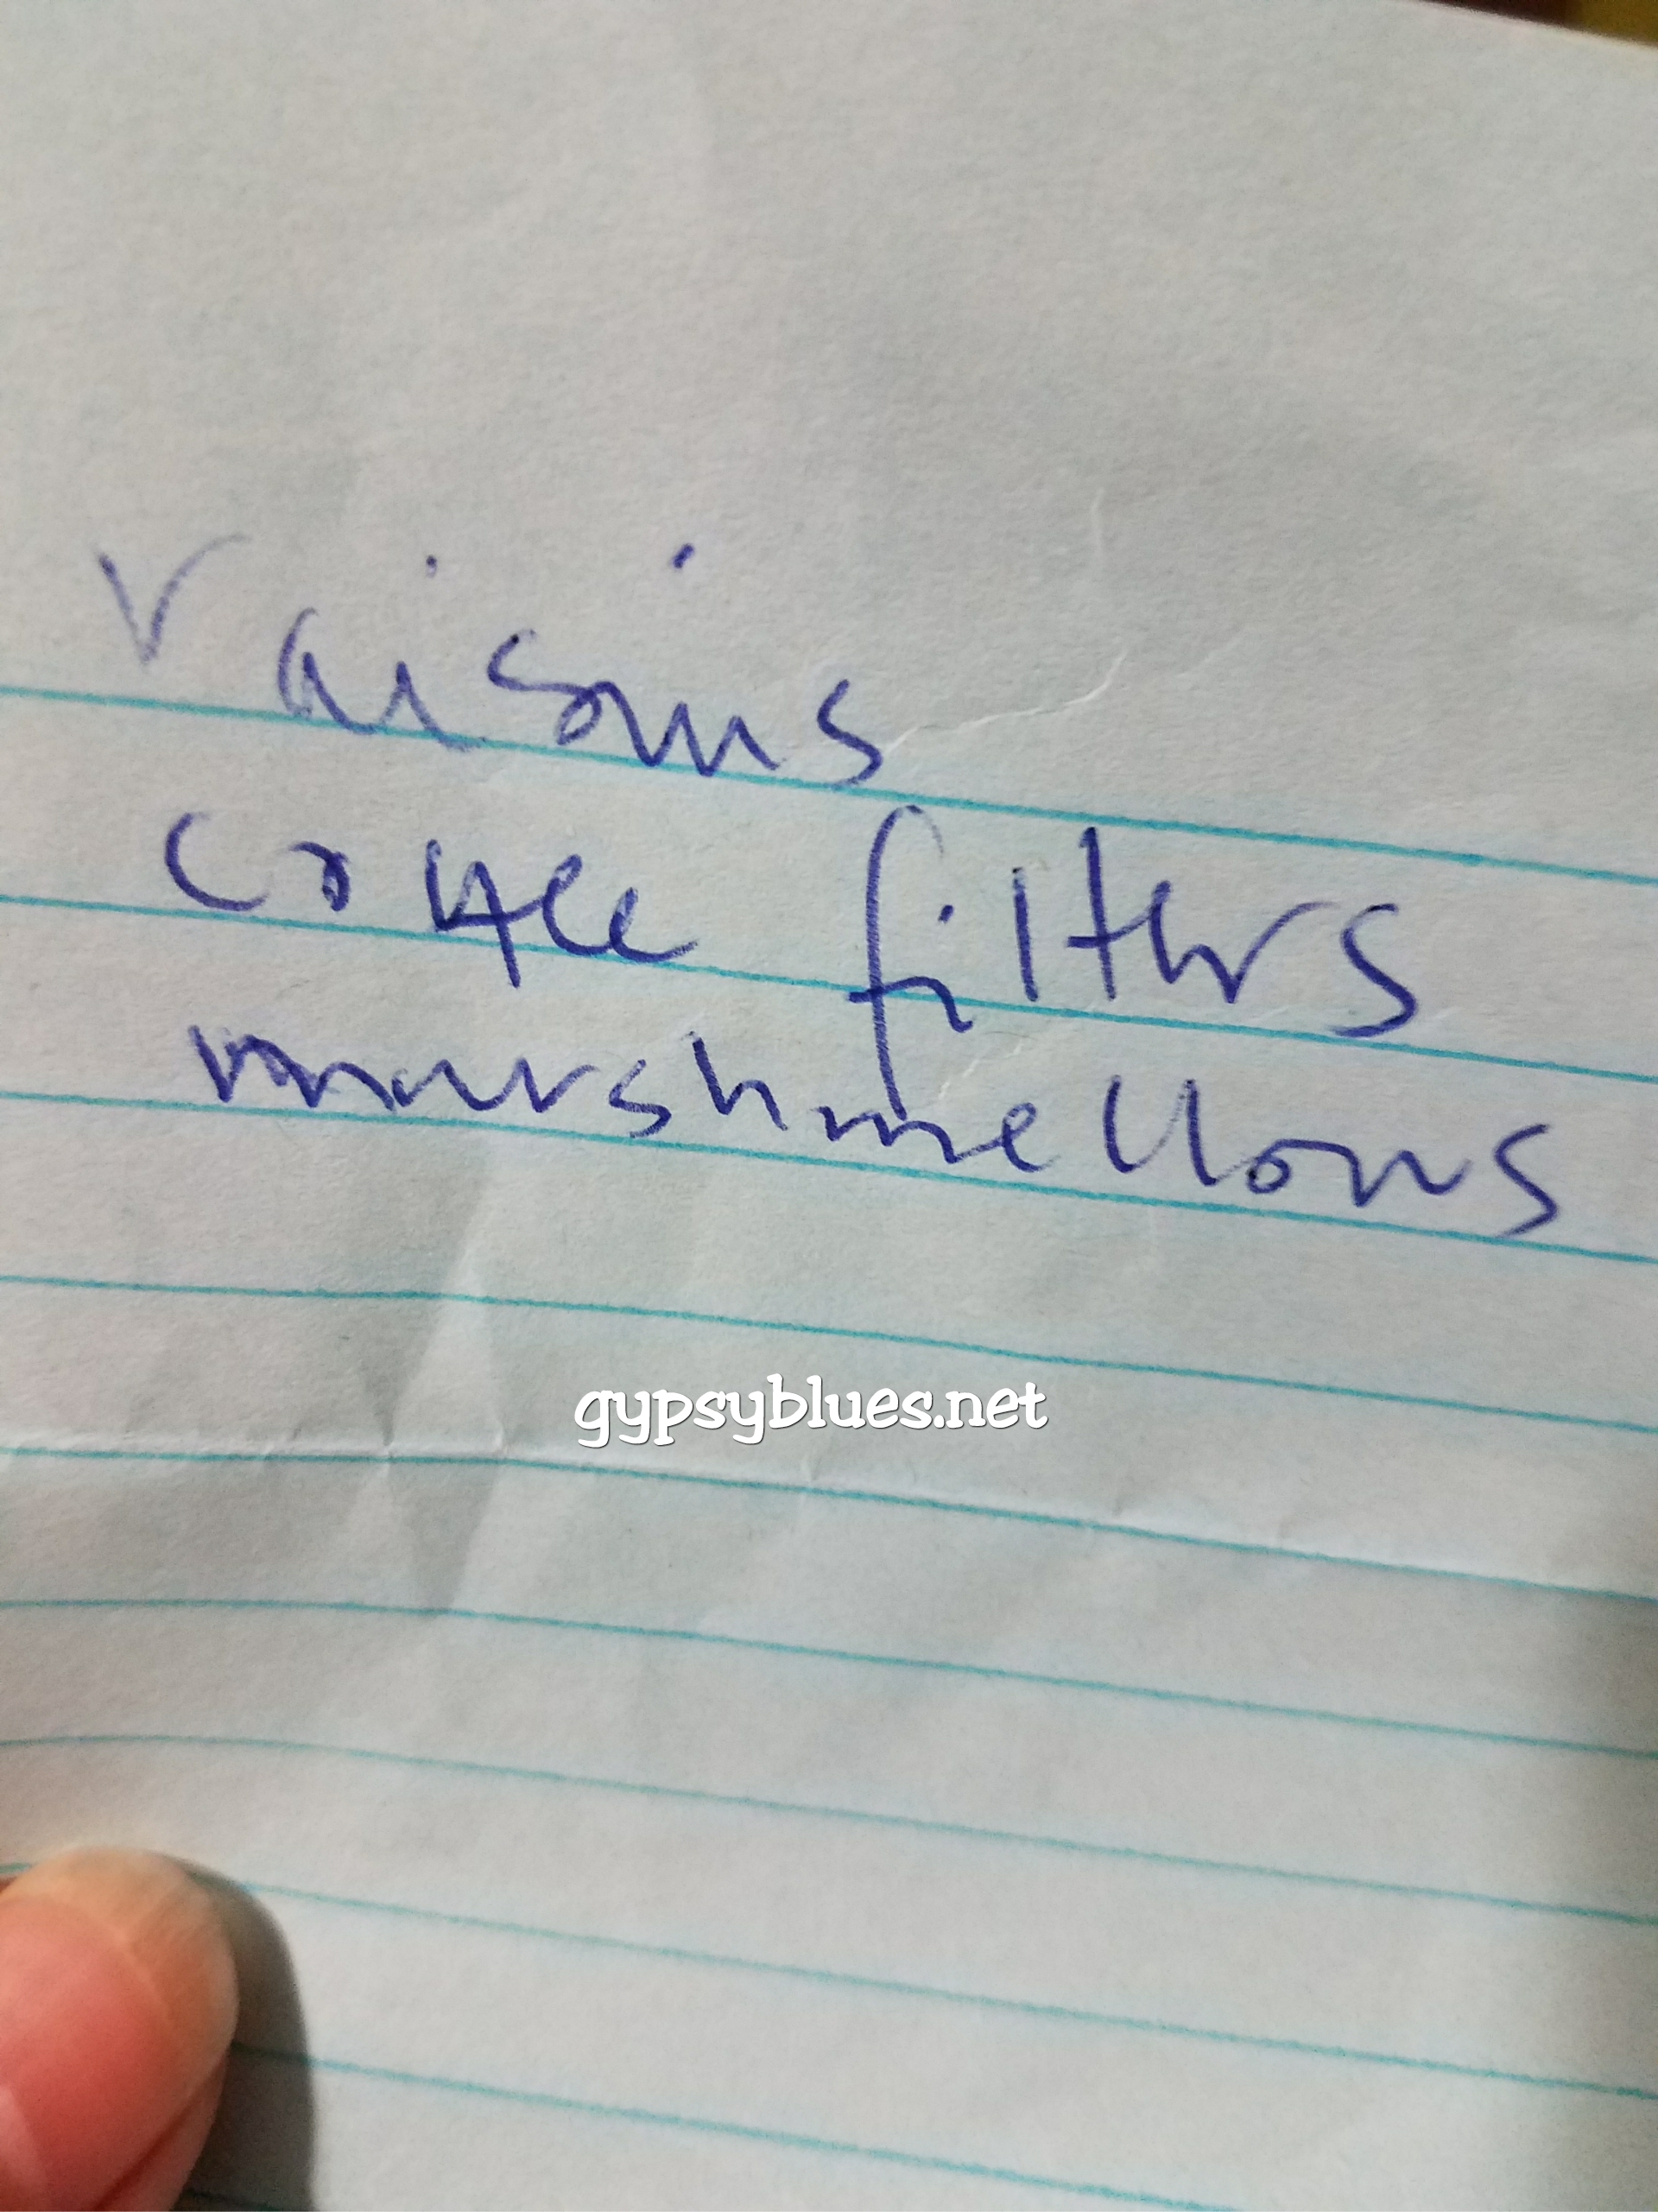 raisins
coffee filters
marshmellows
gypsyblues.net